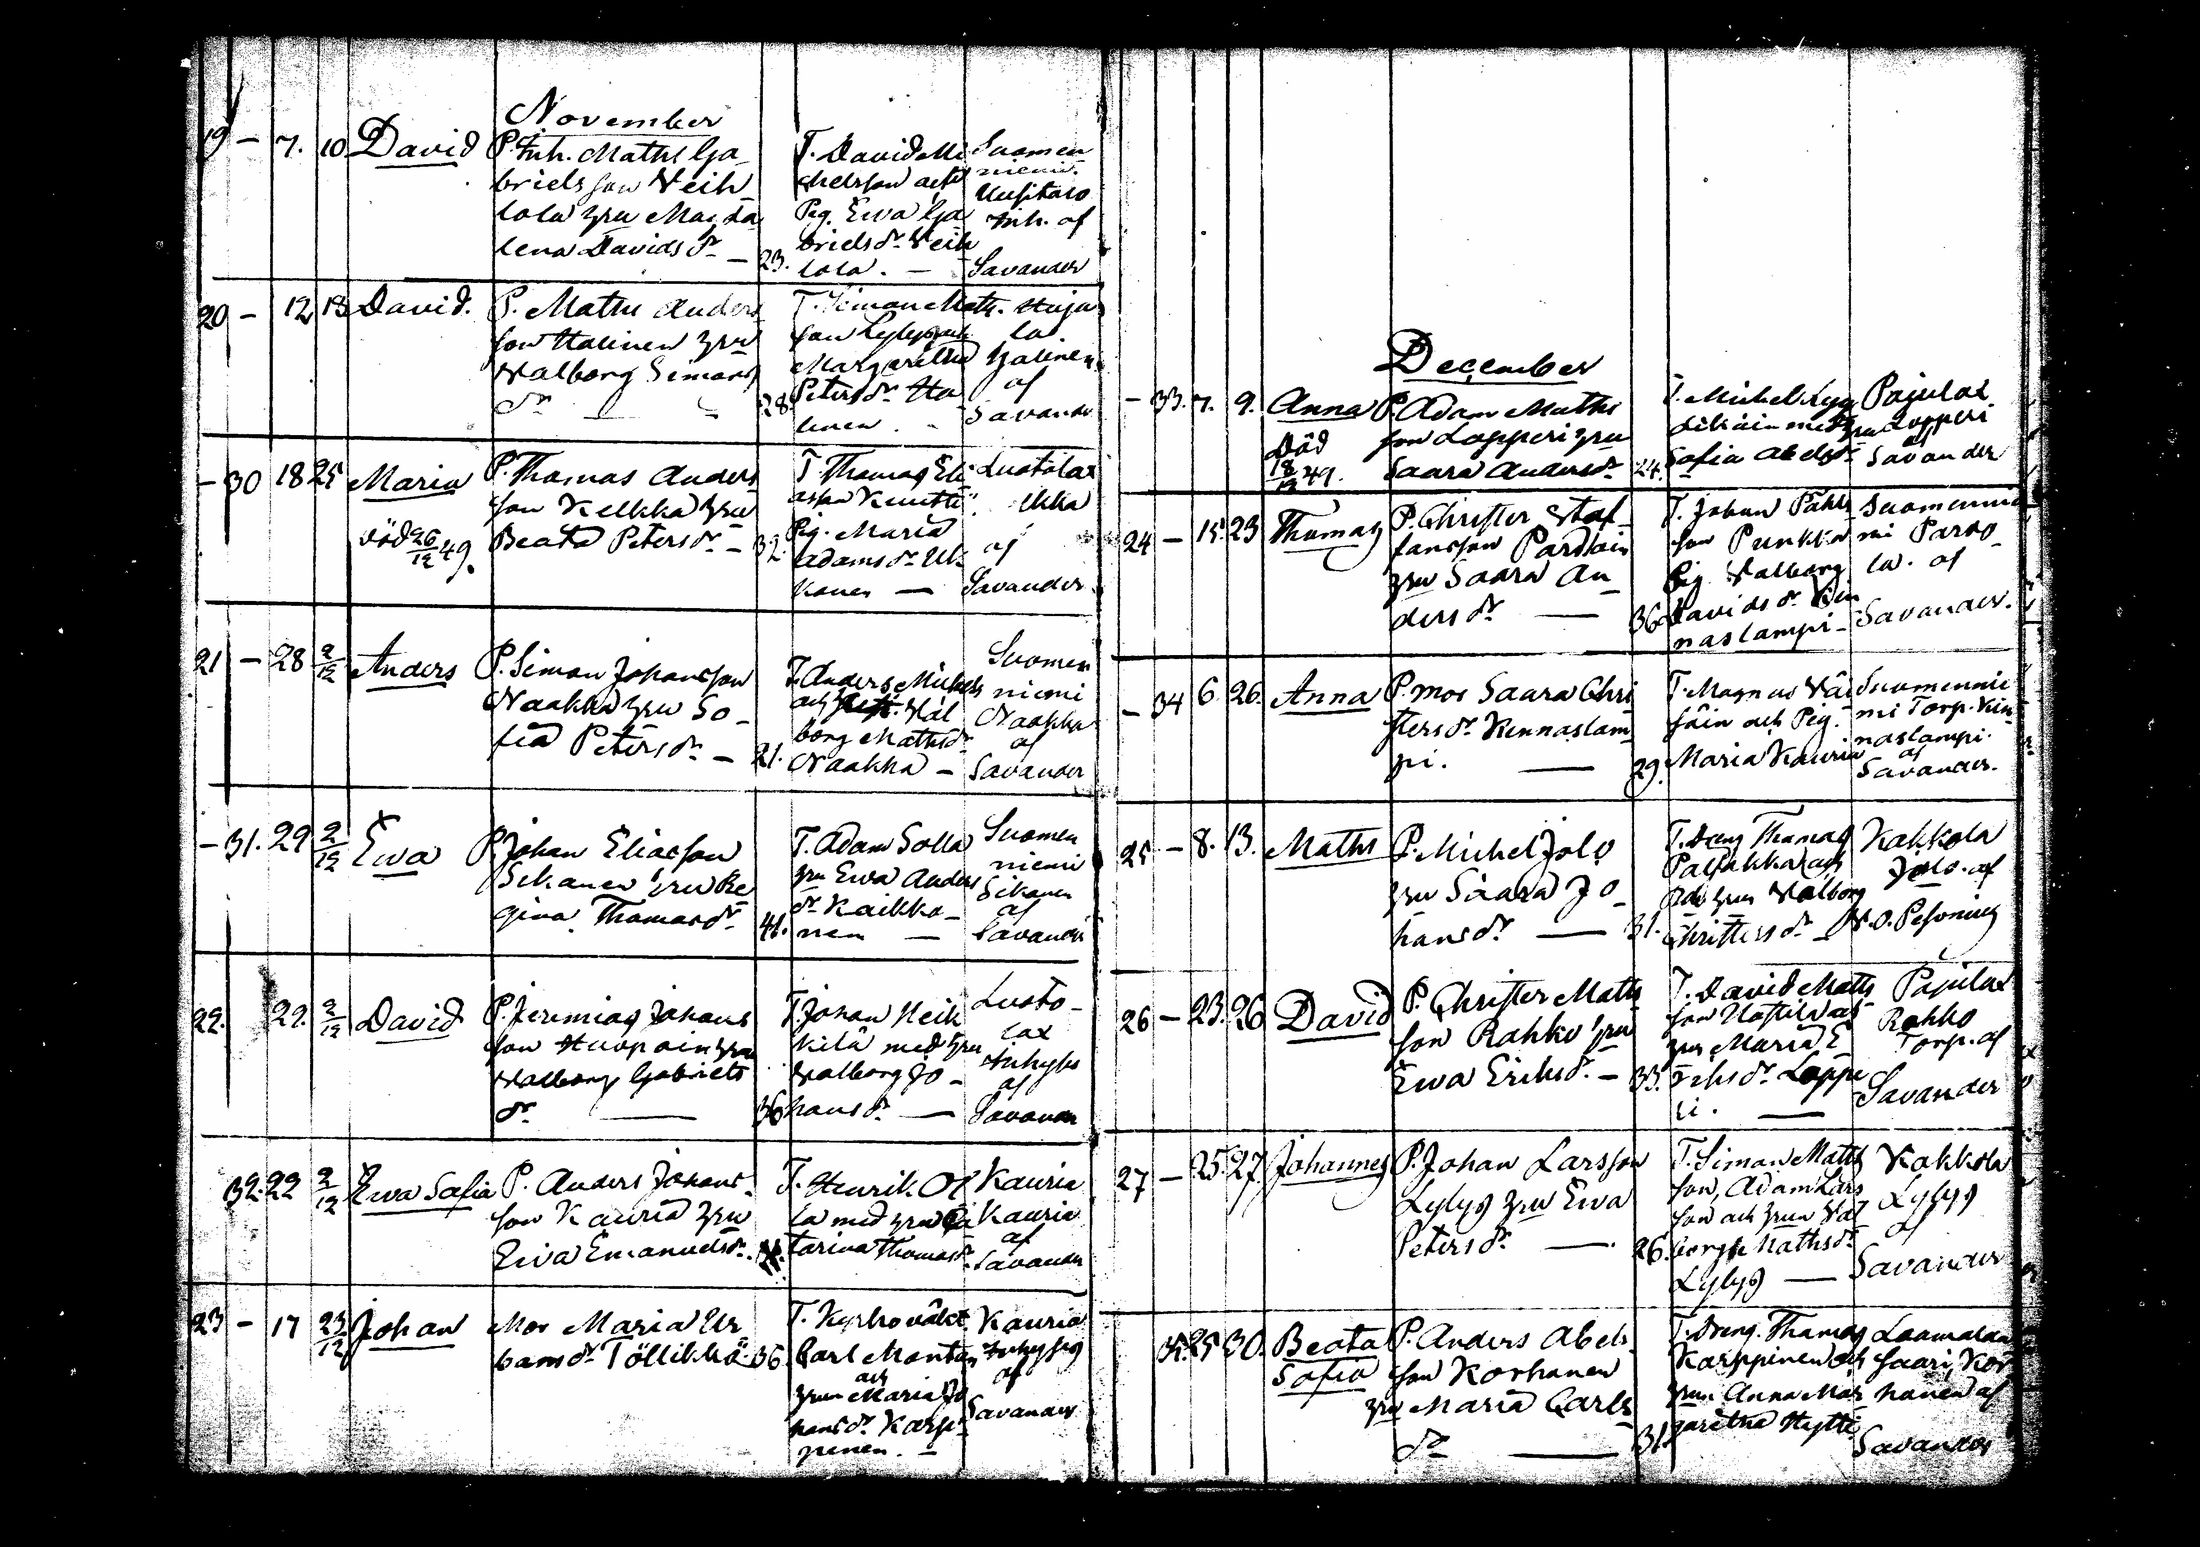 November
19 – 7. 10 David P. Inh. Maths Ga-
briels son Veih
lola hru Magda
lena Davids dr – 23.
T. David Mi
chelsson och
Pig. Ewa Ga
briels dr Veih
lola. –
Suomen
niemi.
Inh. af
Savander
20 – 12 13 David. P. Maths Anders
son Halinen hru
Walborg Simons
dr – 28
T. Simon Maths
son Lylys och
Margaretha
Peters dr Ha
linen. –
la
Halinen
af
Savander
– 30 18 25 Maria P. Thomas Anders
son Kelkka hru
Beata Peters dr – 32
död 26/12 49.
T. Thomas Eli
Pig. Maria
Adams dr Uk
konen –
Lustolax
af
Savander
21 – 28 2/12 Anders P. Simon Johansson
Naakka hru So-
fia Peters dr – 21.
T. Anders Michels
och Wal
borg Maths dr
Naakka –
Suomen
niemi
Naakka
af
Savander
– 31. 29 2/12 Ewa P. Johan Eliasson
Sikanen hru Re
gina Thomas dr 41.
T. Adam Solla
hru Ewa Anders
dr Kaikko-
nen –
Suomen
niemi
Sikanen
af
Savander
22. 29. 2/12 David P. Jeremias Johans
son Huopain hru
Walborg Gabriels
dr – 36
T. Johan Heik
kilä med hru
Walborg Jo-
hans dr –
Lusto-
lax
Inhyses
af
Savander
32. 22 2/12 Ewa Sofia P. Anders Johans-
son Kauria hru
Ewa Emanuels dr.
T. Henrik Ol
la med hru Ca
tarina Thomas dr
Kauria
Kauria
af
Savander
23 – 17 23/12 Johan Mor Maria Ur
bans dr Töllikkö 36
T. Kyrkoväkt
Carl Montan
och
hrun Maria Jo
hans dr Karp-
pinen. –
Kauria
Inhyses
af
Savander
December
– 33. 7. 9. Anna P. Adam Maths
son Lapperi hru
Saara Anders dr 24.
Död
18/12 49.
T. Michel Lyy
dikäin med hru
Sofia Abels dr
Pajulax
Lapperi
Savander
24 – 15. 23 Thomas P. Christer Staf-
fansson Pardain
hru Saara An
ders dr – 36.
T. Johan Påhls
son Punkka
Pig. Walborg
Davids dr Kin
naslampi –
Suomennie
mi Pardo-
la. af
Savander.
– 34 6. 26. Anna P. mor Saara Chri
sters dr Kennaslam-
pi. – 29.
T. Magnus Väi
säin och Pig.
Maria Kauria
Suomennie
mi Torp. Kin
naslampi.
af
Savander.
25 – 8. 13. Maths P. Michel Jolo
hru Saara Jo-
hans dr – 31.
T. Dreng Thomas
och
hrun Walborg
Christers dr –
Kakkola
Jolo. af
N. O. Pesonius
26 – 23. 26 David P. Christer Maths
son Rahko hru
Ewa Eriks dr. – 33.
T. David Maths
son
hru Maria E
riks dr Lappe
ri. –
Pajulax
Rahko
Torp. af
Savander
27 – 25. 27 Johannes P. Johan Larsson
Lylys hru Ewa
Peters dr – 26.
T. Simon Maths
son, Adam Lars
son och hrun Wal
borg Maths dr
Lylys –
Kakkola
Lylys
af
Savander
35. 25 30. Beata
Sofia P. Anders Abels-
son Korhonen
hru Maria Carls
dr – 31.
T. Dreng. Thomas
Karppinen och
hrun Anna Mar
garetha Hytti
Laamalan
saari, Kor
honen af
Savander